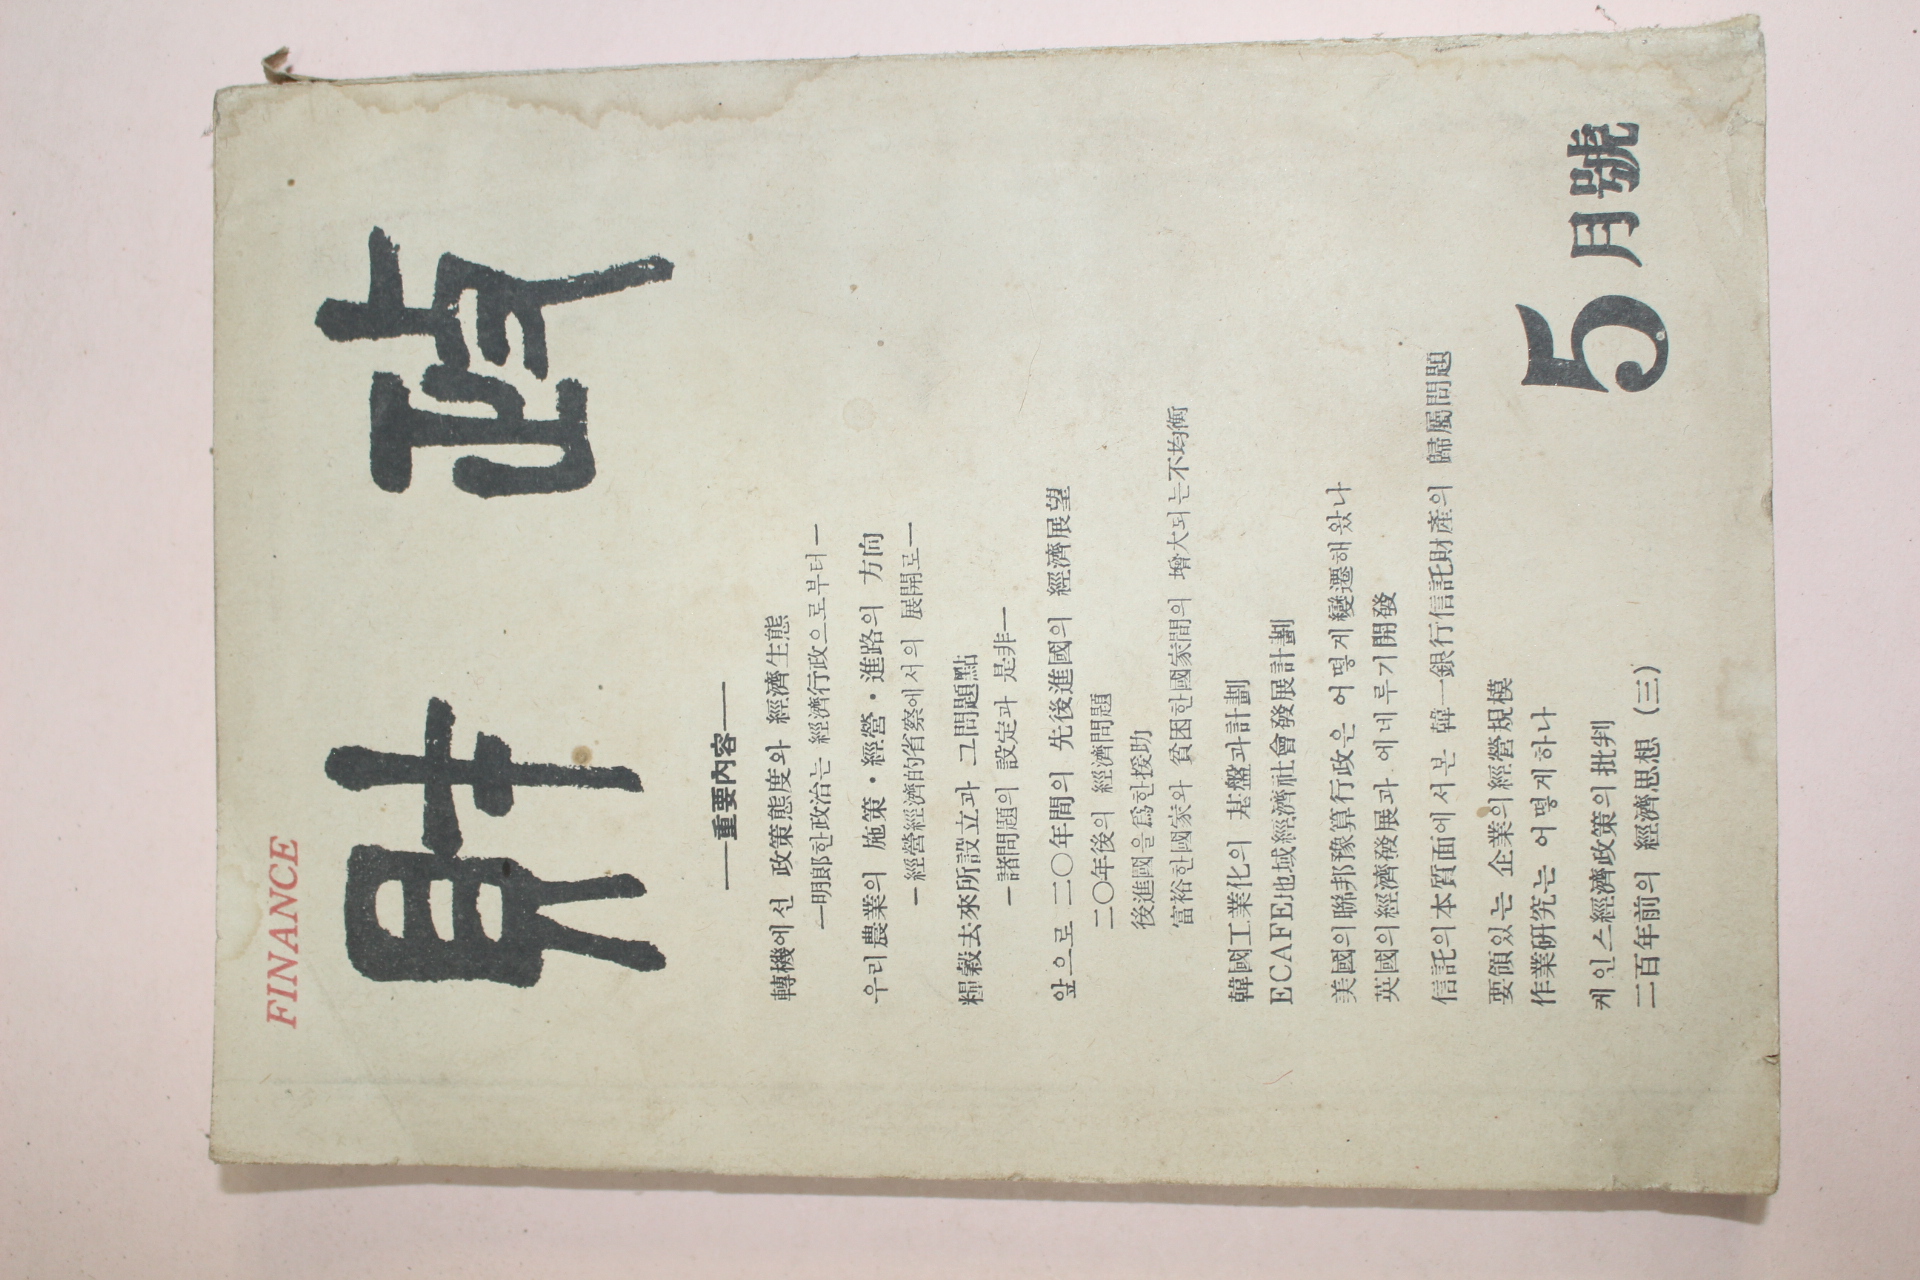 FINANCE
財政
―重要內容―
轉機에선 政策態度와 經濟生態
―明郎한政治는 經濟行政으로부터―
우리農業의 施策·經營·進路의 方向
―經營經濟的省察에서의 展開로―
糧穀去來所設立과 그問題點
―諸問題의 設定과 是非―
앞으로 二〇年間의 先後進國의 經濟展望
二〇年後의 經濟問題
後進國을爲한援助
富裕한國家와 貧困한國家間의 增大되는不均衡
韓國工業化의 基盤과計劃
ECAFE地域經濟社會發展計劃
美國의聯邦豫算行政은 어떻게變遷해왔나
英國의經濟發展과 에네루기開發
信託의本質面에서본 韓一銀行信託財產의 歸屬問題
要領있는 企業의經營規模
作業硏究는 어떻게하나
케인스經濟政策의批判
二百年前의 經濟思想 (三)
5月號